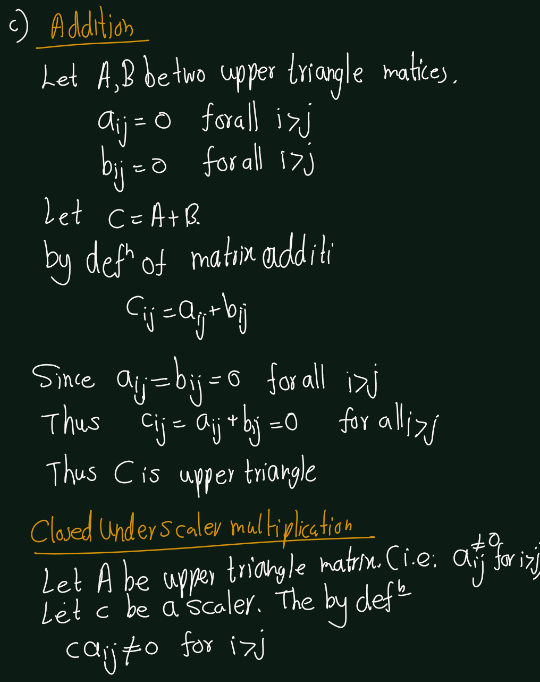 c) Addition
Let A,B be two upper triangle matices.
aij = 0 for all i>j
bij = 0 for all i>j
Let C = A+B.
by defⁿ of matrix additi
Cij = aij + bij
Since aij = bij = 0 for all i>j
Thus cij = aij + bij = 0 for all i>j
Thus C is upper triangle
Closed Under scaler multiplication
Let A be upper triangle matrix. (i.e. aij ≠0 for i>j
Let c be a scaler. The by defⁿ
caij ≠ 0 for i>j